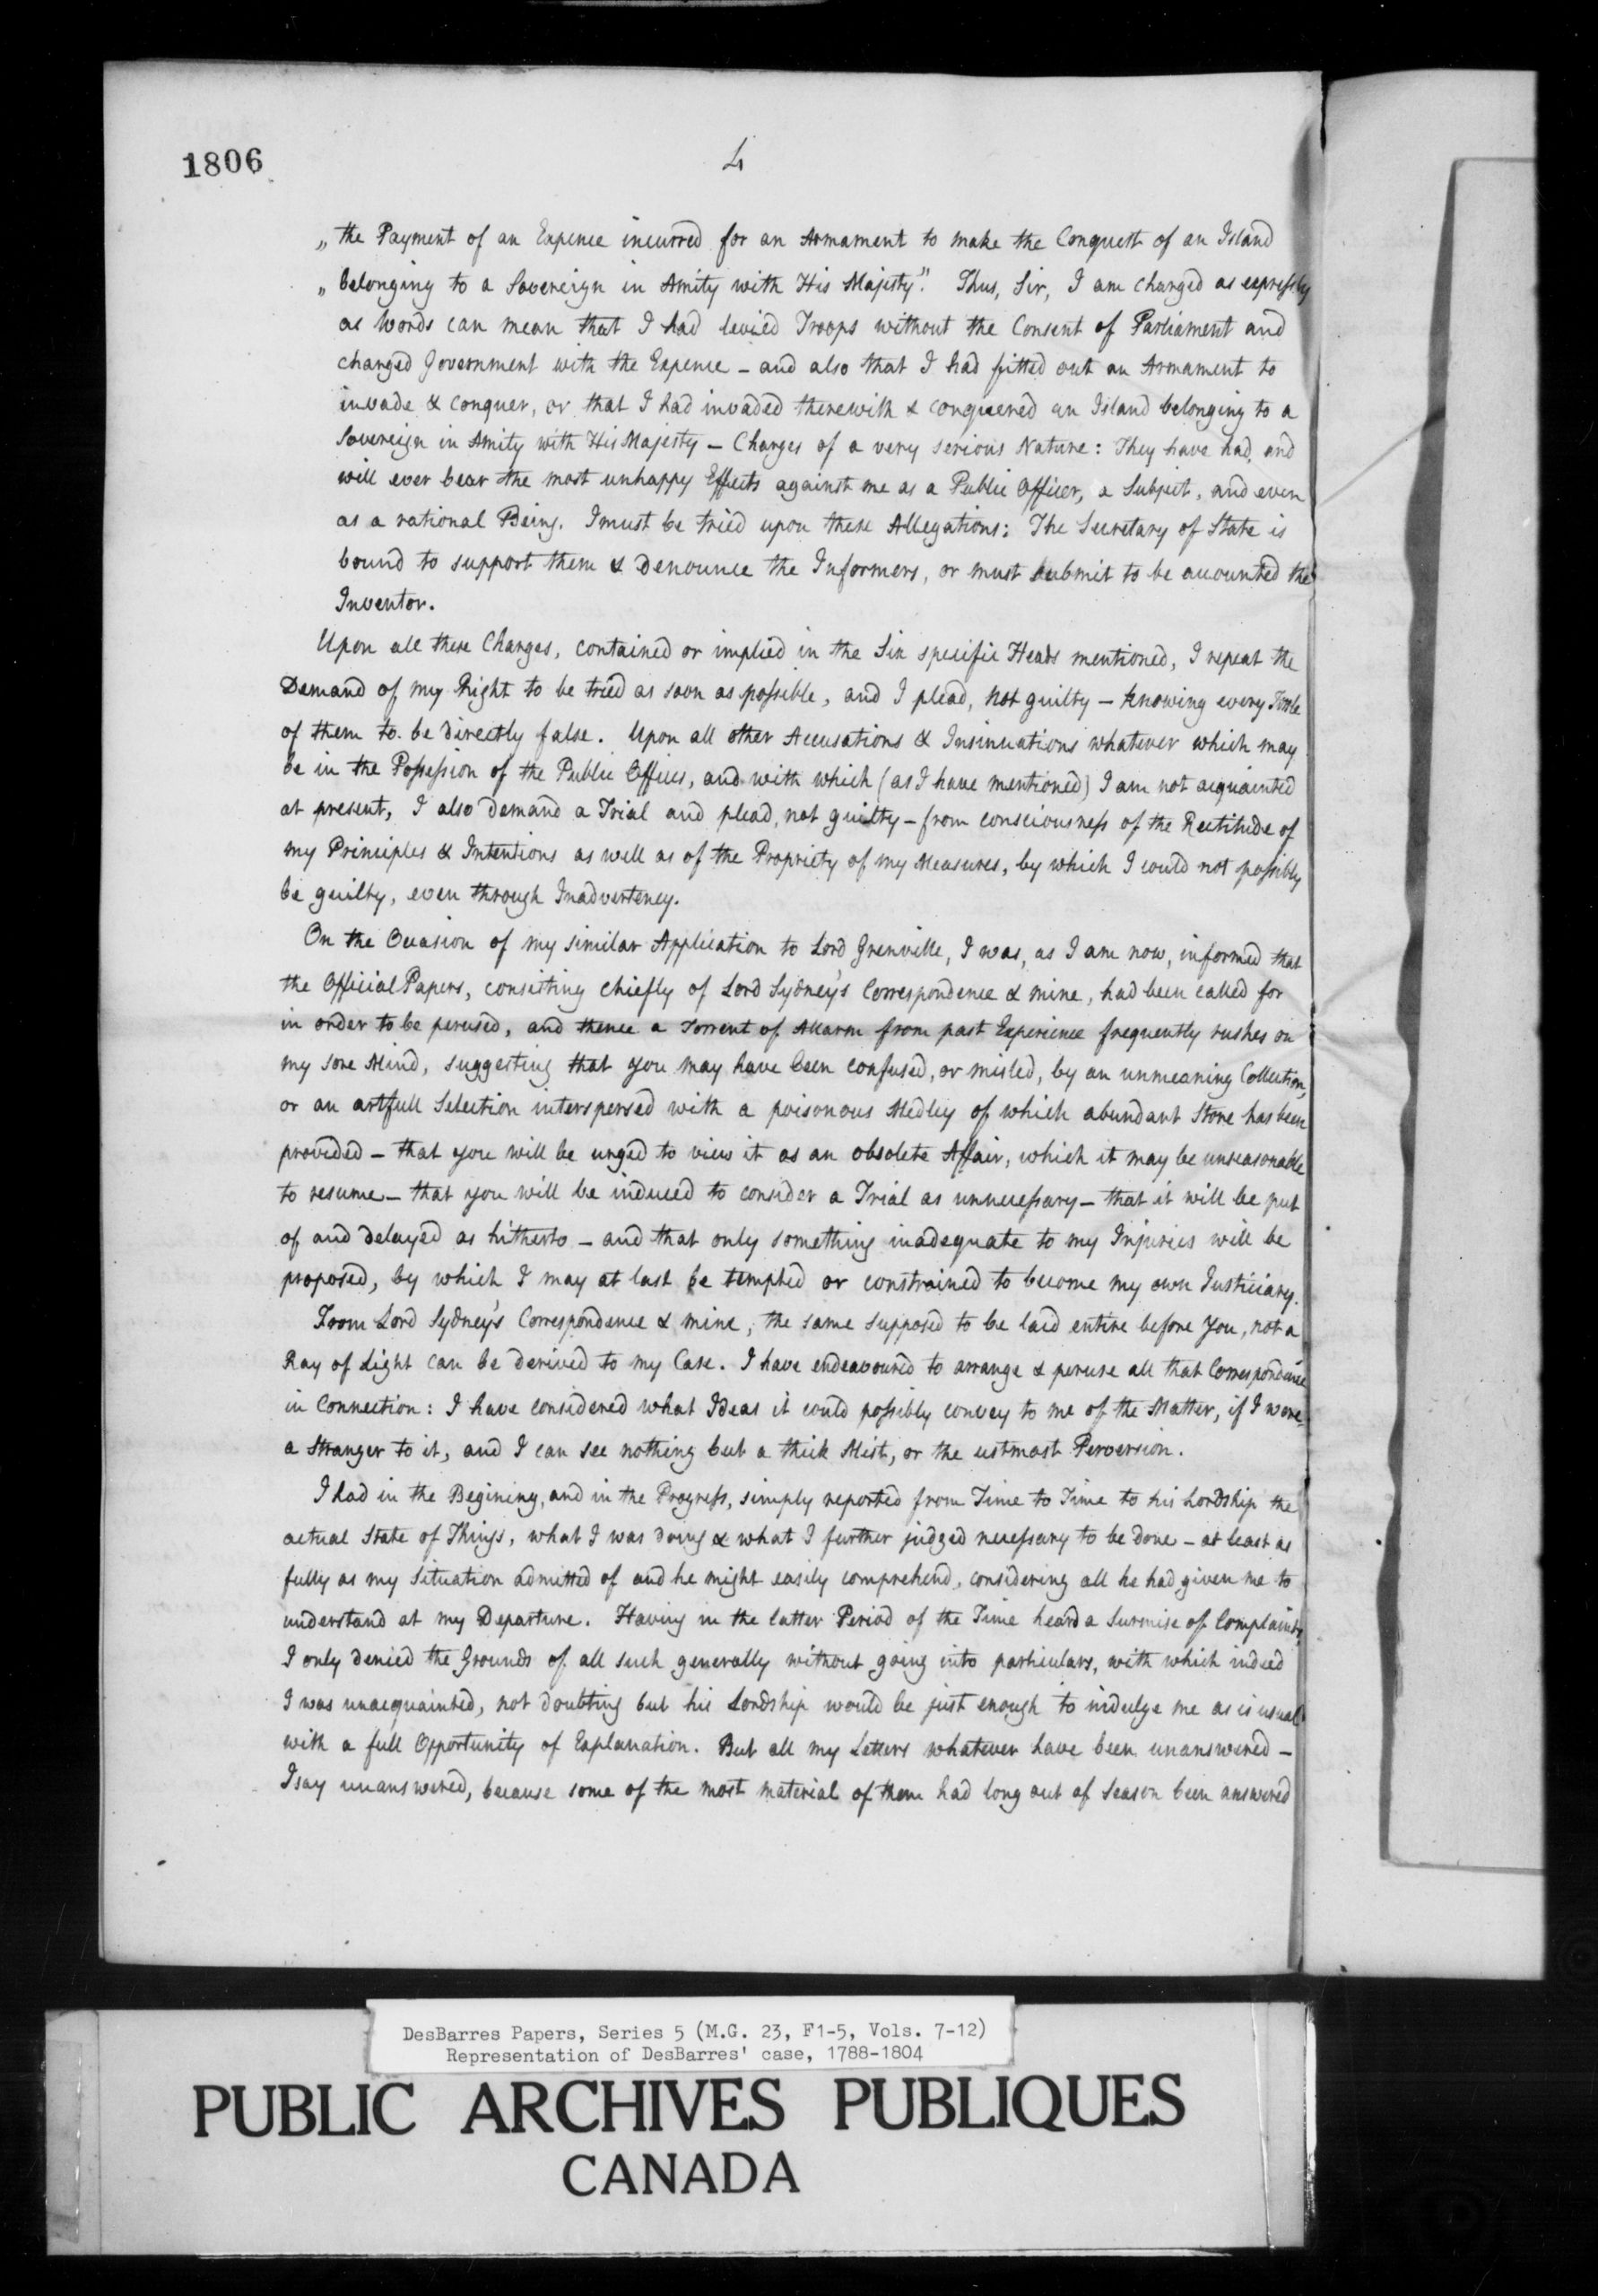 1806
4
„ the Payment of an Expence incurred for an Armament to make the Conquest of an Island
„ belonging to a Sovereign in Amity with His Majesty." Thus, Sir, I am charged as expressly
as Words can mean that I had levied Troops without the Consent of Parliament and
charged Government with the Expence – and also that I had fitted out an Armament to
invade & conquer, or that I had invaded therewith & conquered an Island belonging to a
Sovereign in Amity with His Majesty – Charges of a very serious Nature: They have had, and
will ever bear the most unhappy Effects against me as a Public Officer, a Subject, and even
as a rational Being. I must be tried upon these Allegations: The Secretary of State is
bound to support them & denounce the Informers, or must submit to be accounted the
Inventor.
Upon all these Charges, contained or implied in the Six specific Heads mentioned, I repeat the
Demand of my Right to be tried as soon as possible, and I plead, not guilty – knowing every Tittle
of them to be directly false. Upon all other Accusations & Insinuations whatever which may
be in the Possession of the Public Offices, and with which (as I have mentioned) I am not acquainted
at present, I also demand a Trial and plead, not guilty – from consciousness of the Rectitude of
my Principles & Intentions as well as of the Propriety of my Measures, by which I could not possibly
be guilty, even through Inadvertency.
On the Occasion of my similar Application to Lord Grenville, I was, as I am now, informed that
the Official Papers, consisting chiefly of Lord Sydney's Correspondence & mine, had been called for
in order to be perused, and thence a Torrent of Allarm from past Experience frequently rushes on
my sore Mind, suggesting that you may have been confused, or misled, by an unmeaning Collection,
or an artfull Selection interspersed with a poisonous Medley of which abundant Store has been
provided – that you will be urged to view it as an obsolete Affair, which it may be unseasonable
to resume – that you will be induced to consider a Trial as unnecessary – that it will be put
of and delayed as hitherto – and that only something inadequate to my Injuries will be
proposed, by which I may at last be tempted or constrained to become my own Justiciary.
From Lord Sydney's Correspondence & mine, the same supposed to be laid entire before You, not a
Ray of Light can be derived to my Case. I have endeavoured to arrange & peruse all that Correspondence
in Connection: I have considered what Ideas it could possibly convey to me of the Matter, if I were
a Stranger to it, and I can see nothing but a thick Mist, or the utmost Perversion.
I had in the Begining, and in the Progress, simply reported from Time to Time to his Lordship the
actual State of Things, what I was doing & what I further judged necessary to be done – at least as
fully as my Situation admitted of and he might easily comprehend, considering all he had given me to
understand at my Departure. Having in the latter Period of the Time heard a Surmise of Complaints,
I only denied the Grounds of all such generally without going into particulars, with which indeed
I was unacquainted, not doubting but his Lordship would be just enough to indulge me as is usual
with a full Opportunity of Explanation. But all my Letters whatever have been unanswered –
I say unanswered, because some of the most material of them had long out of Season been answered
DesBarres Papers, Series 5 (M.G. 23, F1-5, Vols. 7-12)
Representation of DesBarres' case, 1788-1804
PUBLIC ARCHIVES PUBLIQUES
CANADA